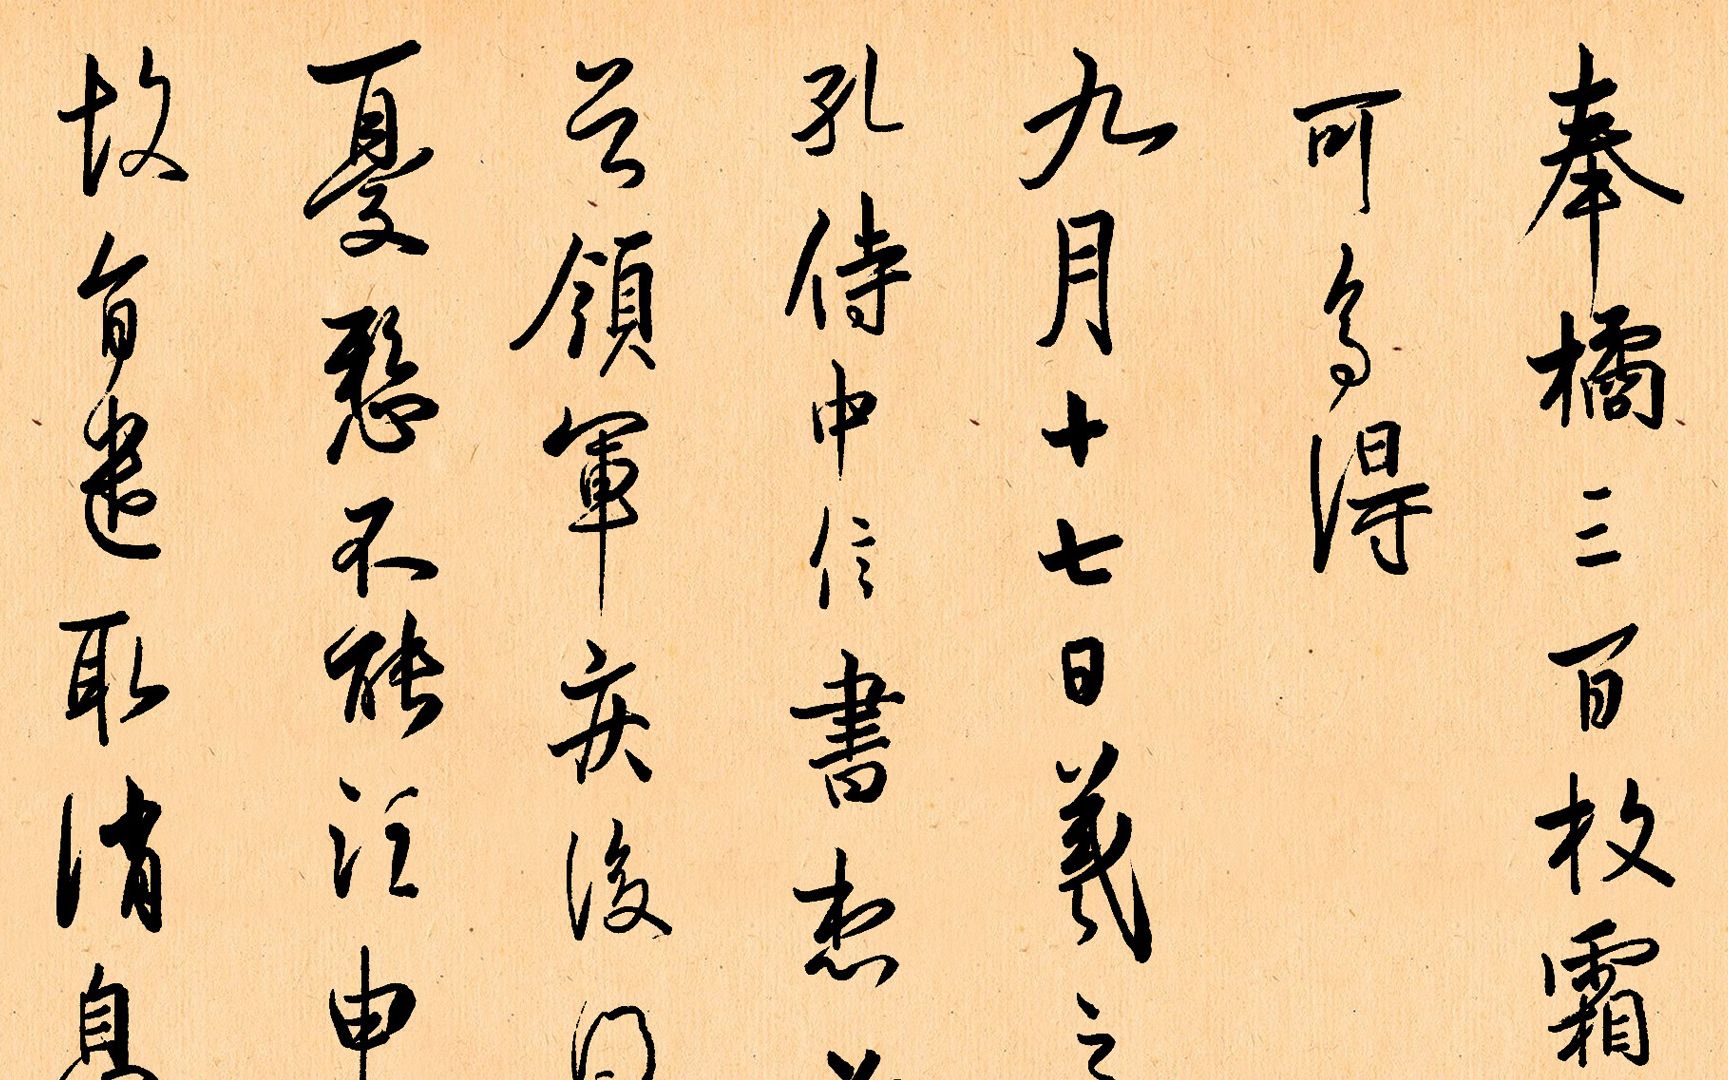 奉橘三百枚霜
可多得
九月十七日羲之
孔侍中信書想
領軍疾後問
憂懸不能
故旨遣取消息